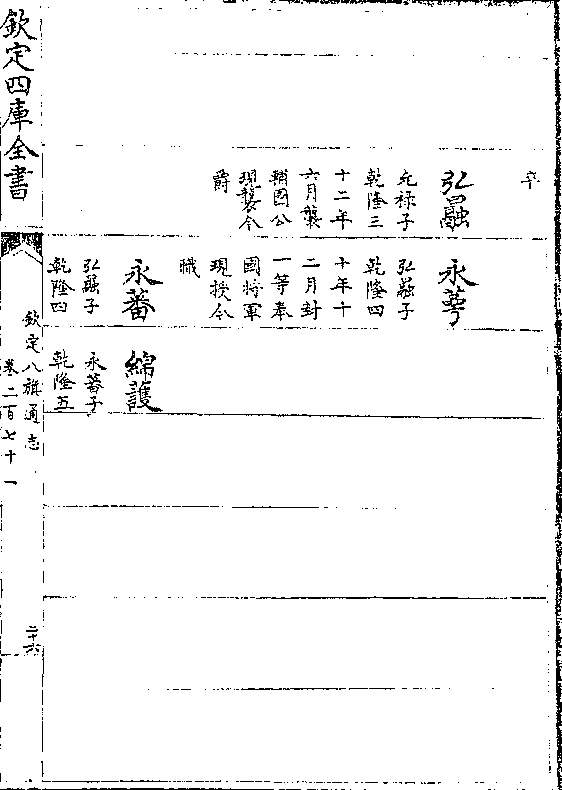 卒
弘曧
允祿子
乾隆三
十二年
六月襲
輔國公
現襲今
爵
永蕚
弘曧子
乾隆四
十年十
二月封
一等奉
國將軍
現授今
職
永蕃
弘曧子
乾隆四
綿護
永蕃子
乾隆五
欽定四庫全書
欽定八旗通志
卷二百七十一
二十六